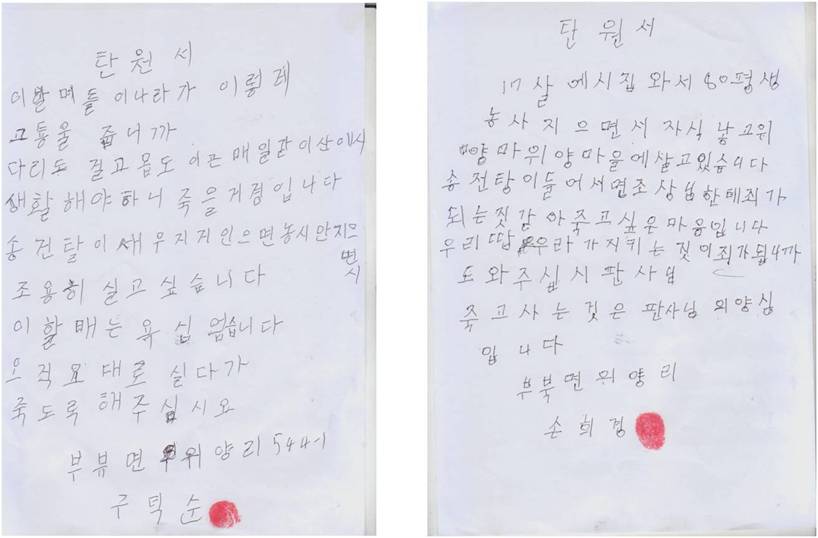 탄원서
이할며들 이나라가 이렇레
고통울 줍니까
다리도 걸고 몹도 이픈 매일같이 산에서
생활해야하니 죽을거졍입니다
송전탈이 새우지지 안으면 농시만 지으
면서
조용히 실고 싶습니다
이 할매는 욕심 업습니다
오직 요대로 실다가
죽도록 해주십시요
부뷰면 위양리 544-1
구턱순
탄원서
17살 에시집와서 80평생
농사지으면서 자식낳고위
양마위양마을에살고있습니다
송전탕이들어서면조상님한테죄가
되는짓갇아죽고싶은마음입니다
우리땁 우라가지키는짓이죄가됩니까
도와주십시판사님
죽고사는것은판사님의양심
입니다
부북면위양리
손희경